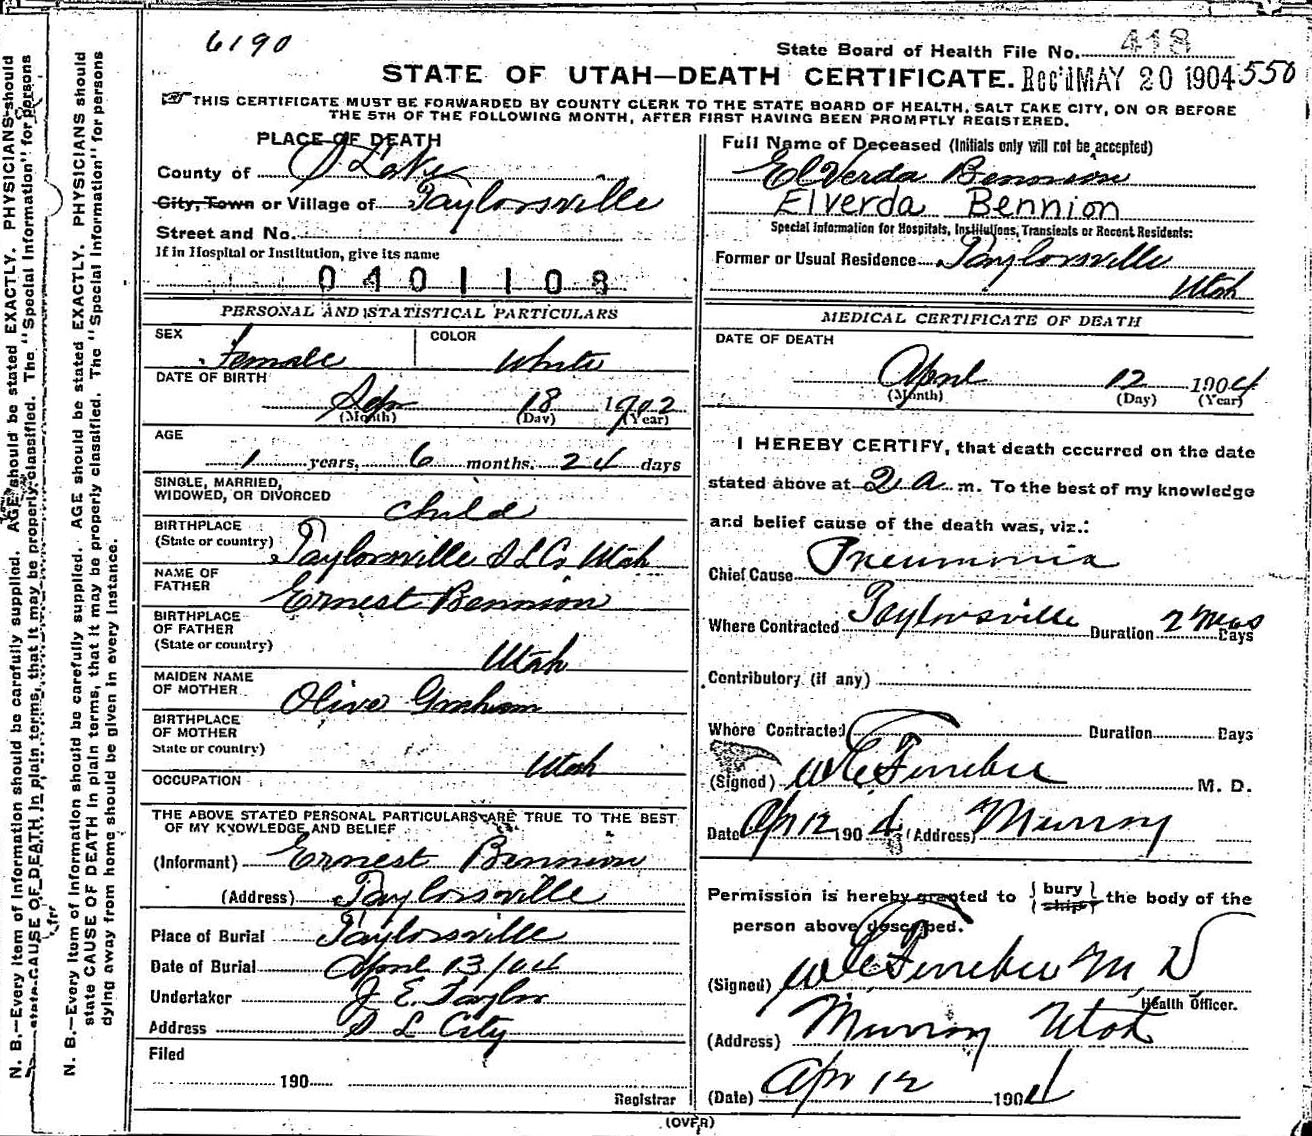 6190
State Board of Health File No. 418
STATE OF UTAH—DEATH CERTIFICATE. Rec'd MAY 20 1904 550
THIS CERTIFICATE MUST BE FORWARDED BY COUNTY CLERK TO THE STATE BOARD OF HEALTH, SALT LAKE CITY, ON OR BEFORE
THE 5TH OF THE FOLLOWING MONTH, AFTER FIRST HAVING BEEN PROMPTLY REGISTERED.
PLACE OF DEATH
County of S Lake
City, Town or Village of Taylorsville
Street and No.
If in Hospital or Institution, give its name
0401108
PERSONAL AND STATISTICAL PARTICULARS
SEX Female COLOR White
DATE OF BIRTH
Sep 18 1902
(Month) (Day) (Year)
AGE
1 years, 6 months. 24 days
SINGLE, MARRIED,
WIDOWED, OR DIVORCED child
BIRTHPLACE
(State or country) Taylorsville S L Co Utah
NAME OF
FATHER Ernest Bennion
BIRTHPLACE
OF FATHER
(State or country) Utah
MAIDEN NAME
OF MOTHER Olive Graham
BIRTHPLACE
OF MOTHER
State or country) Utah
OCCUPATION
THE ABOVE STATED PERSONAL PARTICULARS ARE TRUE TO THE BEST
OF MY KNOWLEDGE AND BELIEF
(Informant) Ernest Bennion
(Address) Taylorsville
Place of Burial Taylorsville
Date of Burial April 13/04
Undertaker J. E. Taylor
Address S L City
Filed
190
Registrar
Full Name of Deceased (Initials only will not be accepted)
ElVerda Bennion
Elverda Bennion
Special Information for Hospitals, Institutions, Transients or Recent Residents:
Former or Usual Residence Taylorsville
Utah
MEDICAL CERTIFICATE OF DEATH
DATE OF DEATH
April 12 1904
(Month) (Day) (Year)
I HEREBY CERTIFY, that death occurred on the date
stated above at 2 a m. To the best of my knowledge
and belief cause of the death was, viz.:
Chief Cause Pneumonia
Where Contracted Taylorsville Duration 2 Days
Contributory (if any)
Where Contracted Duration Days
(Signed) M. D.
Date Apr 12 1904 (Address) Murray
Permission is hereby granted to { bury ship } the body of the
person above described.
(Signed) M D
Health Officer.
(Address) Murray Utah
(Date) Apr 12 1904
(OVER)
N. B.—Every item of information should be carefully supplied. AGE should be stated EXACTLY. PHYSICIANS should
state CAUSE OF DEATH in plain terms, that it may be properly classified. The "Special Information" for persons
N. B.—Every item of information should be carefully supplied. AGE should be stated EXACTLY. PHYSICIANS should
state CAUSE OF DEATH in plain terms, that it may be properly classified. The "Special Information" for persons
dying away from home should be given in every instance.